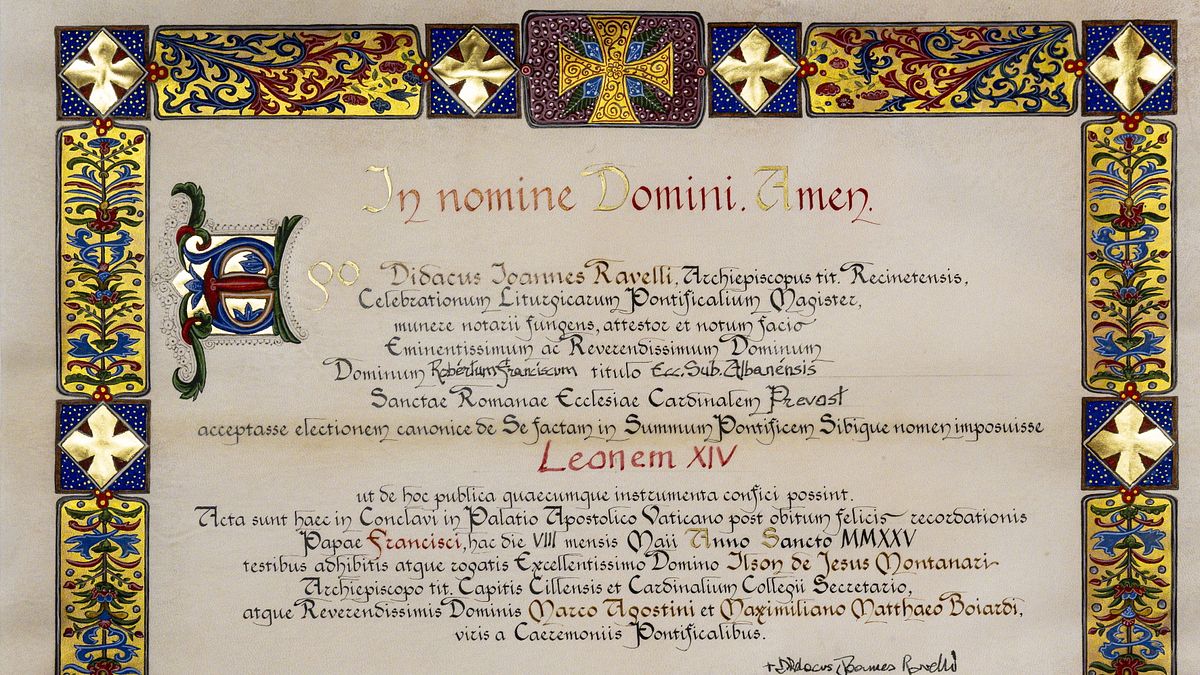 In nomine Domini. Amen.
Ego Didacus Ioannes Ravelli, Archiepiscopus tit. Recinetensis,
Celebrationum Liturgicarum Pontificalium Magister,
munere notarii fungens, attestor et notum facio
Eminentissimum ac Reverendissimum Dominum
Dominum Robertum Franciscum titulo Ecc. Sub. Albanensis
Sanctae Romanae Ecclesiae Cardinalem Prevost
acceptasse electionem canonice de Se factam in Summum Pontificem Sibique nomen imposuisse
Leonem XIV
ut de hoc publica quaecumque instrumenta confici possint.
Acta sunt haec in Conclavi in Palatio Apostolico Vaticano post obitum felicis recordationis
Papae Francisci, hac die VIII mensis Maii Anno Sancto MMXXV
testibus adhibitis atque rogatis Excellentissimo Domino Ilson de Jesus Montanari
Archiepiscopo tit. Capitis Cillensis et Cardinalium Collegii Secretario,
atque Reverendissimis Dominis Marco Agostini et Maximiliano Matthaeo Boiardi,
viris a Caeremoniis Pontificalibus.
+ Didacus Joannes Ravelli